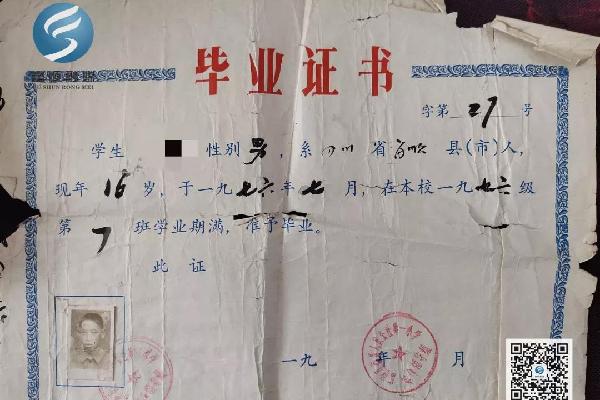 毕业证书
字第 27 号
学生 性别男，系四川省 县(市)人，
现年 16 岁，于一九七六年七月，在本校一九七六级
第 7 班学业期满，准予毕业。
此证
一九 年 月